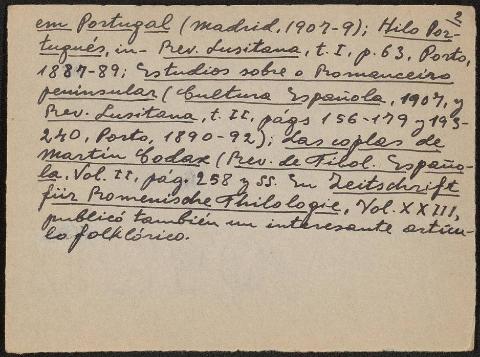 2
em Portugal (Madrid, 1907-9); Hilo Por-
tugués, in- Rev. Lusitana, t. I, p. 63, Porto,
1887-89; Estudios sobre o Romanceiro
peninsular (Cultura Española, 1907, y
Rev. Lusitana, t. II, págs 156-179 y 193-
240, Porto, 1890-92); Las coplas de
Martin Codax (Rev. de Filol. Españo-
la, Vol. II, pág. 258 y ss. En Zeitschrift
für Romenische Philologie, Vol. XXIII,
publicó también un interesante artícu-
lo folklórico.